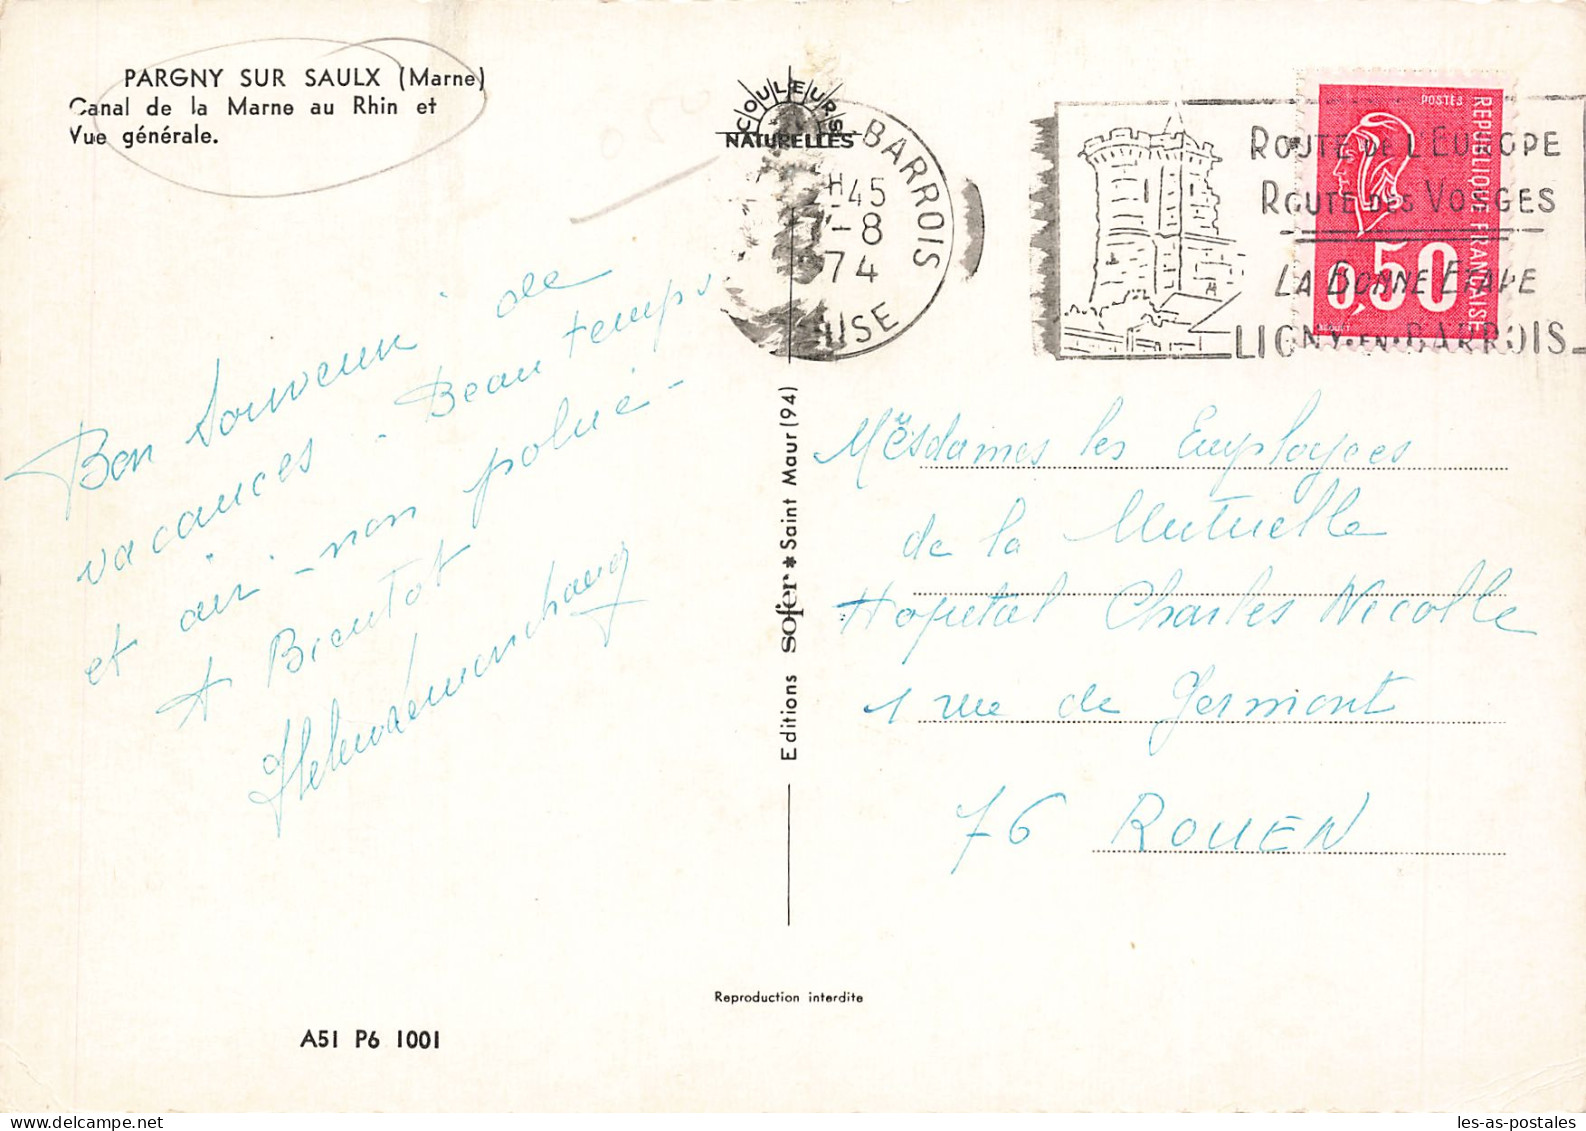 PARGNY SUR SAULX (Marne)
Canal de la Marne au Rhin et
Vue générale.
COULEURS
NATURELLES
BARROIS
H45
7-8
74
ROUTE DE L'EUROPE
ROUTE DES VOSGES
LA BONNE ETAPE
LIGNY-EN-BARROIS
POSTES
REPUBLIQUE FRANCAISE
0,50
Bon Souvenir de
vacances - Beau temps
et air - non polué -
A Bientot
Editions sofer * Saint Maur (94)
Mesdames les Employees
de la Mutuelle
Hopital Charles Nicolle
1 rue de Germont
76 ROUEN
Reproduction interdite
A51 P6 1001
les-as-postales